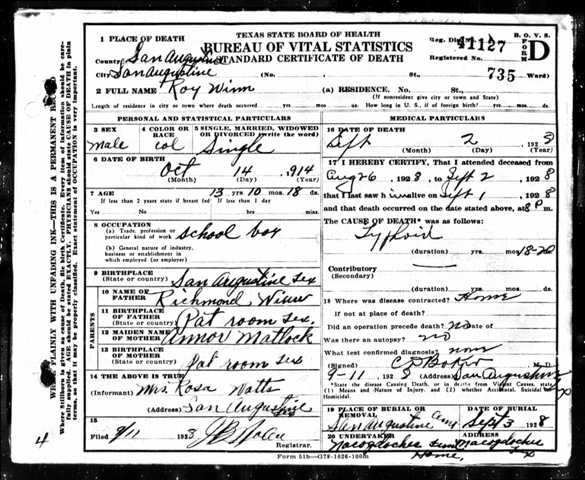 TEXAS STATE BOARD OF HEALTH
BUREAU OF VITAL STATISTICS
STANDARD CERTIFICATE OF DEATH
B. O. V. S.
FORM D
Reg. Dis.
41127
Registered No. 735
1 PLACE OF DEATH
County San Augustine
City San Augustine (No. St. Ward)
2 FULL NAME Roy Winn (a) RESIDENCE. No. St.
(If nonresident give city or town and State)
Length of residence in city or town where death occurred yrs. mos. ds. How long in U. S., if of foreign birth? yrs. mos. ds.
PERSONAL AND STATISTICAL PARTICULARS
3 SEX
male
4 COLOR OR RACE
col
5 SINGLE, MARRIED, WIDOWED OR DIVORCED (write the word)
Single
6 DATE OF BIRTH
Oct 14 914
(Month) (Day) (Year)
7 AGE 13 yrs 10 mos. 18 ds.
If less than 2 years state if breast fed If less than 1 day
Yes No hrs. min.
8 OCCUPATION
(a) Trade, profession or particular kind of work school boy
(b) General nature of industry, business or establishment in which employed (or employer)
9 BIRTHPLACE
(State or country) San Augustine Tex
PARENTS
10 NAME OF FATHER Richmond Winn
11 BIRTHPLACE OF FATHER
(State or country) Pat room Tex.
12 MAIDEN NAME OF MOTHER Annor Matlock
13 BIRTHPLACE OF MOTHER
(State or country) Pat room Tex
14 THE ABOVE IS TRUE
(Informant) Mrs. Rosa Watts
(Address) San Augustine
15
Filed 9/11 1923
Registrar.
MEDICAL PARTICULARS
16 DATE OF DEATH
Sept 2 1923
(Month) (Day) (Year)
17 I HEREBY CERTIFY, That I attended deceased from
Aug 26 1928 to Sept 2 1928
that I last saw him alive on Sept 1, 1928
and that death occurred on the date stated above, at 8 P m.
The CAUSE OF DEATH* was as follows:
Typhoid
(duration) yrs. mos. 18-20
Contributory
(Secondary)
(duration) yrs. mos. ds.
18 Where was disease contracted? Home
if not at place of death?
Did an operation precede death? no Date of
Was there an autopsy? no
What test confirmed diagnosis? none
(Signed) M.D.
9-11 192 (Address) San Augustine
*State the disease Causing Death, or in deaths from Violent Causes, state
(1) Means and Nature of Injury, and (2) whether Accidental, Suicidal or Homicidal.
19 PLACE OF BURIAL OR REMOVAL
San Augustine Cem Sept 3 1928
20 UNDERTAKER
Nacogdoches Fun Home,
ADDRESS
Nacogdoches
Form 51b—G78-1026-100m
4